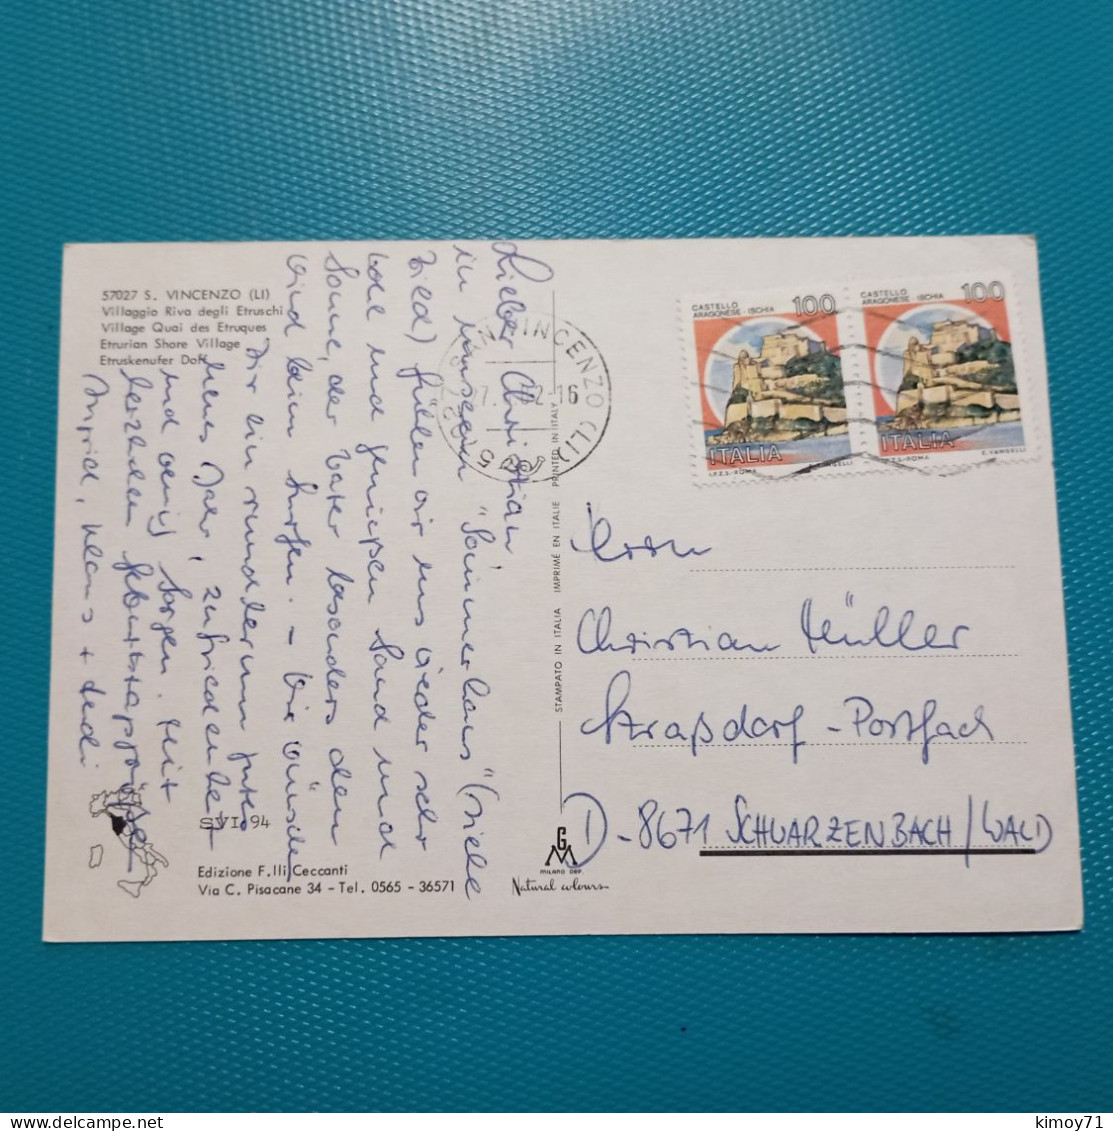 57027 S. VINCENZO (LI)
Villaggio Riva degli Etruschi
Village Quai des Etruques
Etrurian Shore Village
Etruskenufer Dorf
Lieber Christian
in unserem "Sommerhaus" (siehe
Bild) fühlen wir uns wieder sehr
wohl und genießen Sand und
Sonne, der Vater besonders den
Wind beim Surfen. - Wir wünschen
Dir ein rundherum gutes
neues Jahr, Zufriedenheit
und wenig Sorgen. Mit
herzlichen Geburtstagsgrüßen
Ingrid, Klaus + Andi
SVI 94
Edizione F.lli Ceccanti
Via C. Pisacane 34 - Tel. 0565 - 36571
SAN VINCENZO (LI)
2-16
STAMPATO IN ITALIA IMPRIMÉ EN ITALIE PRINTED IN ITALY
G
M
MILANO DEP.
Natural colours
CASTELLO
ARAGONESE - ISCHIA
100
ITALIA
I.P.Z.S. - ROMA
CASTELLO
ARAGONESE - ISCHIA
100
ITALIA
I.P.Z.S. - ROMA E. VANGELLI
Herrn
Christian Müller
Straßdorf - Postfach
D - 8671 SCHWARZENBACH / WALD
kimoy71